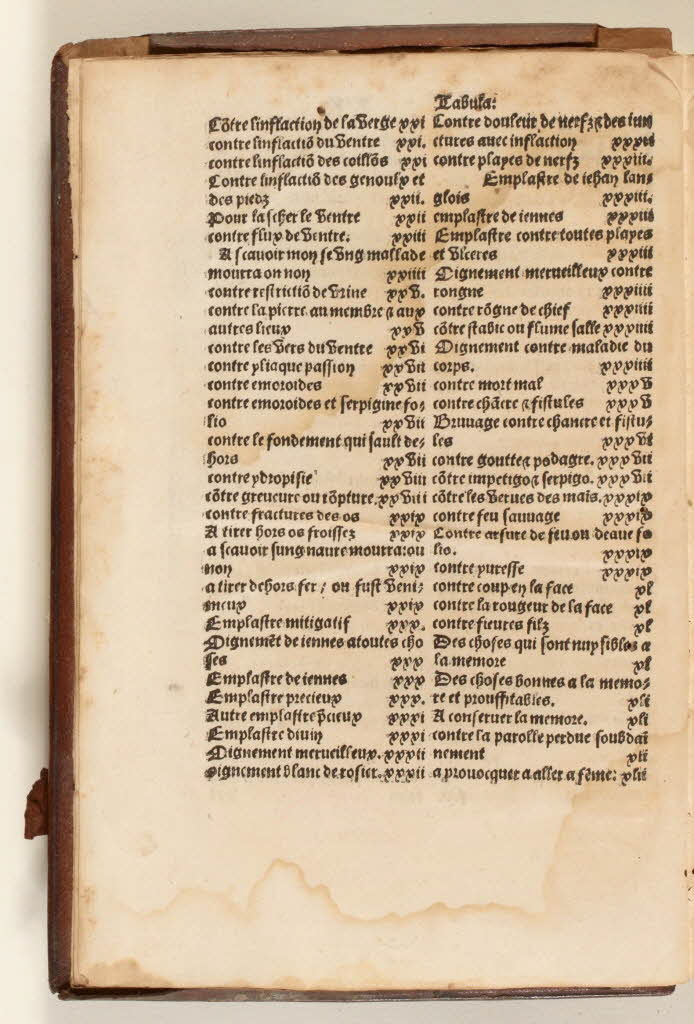 Tabula:
Cõtre linflaction de la verge xxi
contre linflactiõ du ventre xxi.
contre linflactiõ des coillõs xxi
Contre linflactiõ des genoulx et
des piedz xxii.
Pour lascher le ventre xxii
contre flux de ventre. xxiii
A scauoir mon se vng mallade
mourra on non xxiiii
contre restrictiõ de vrine xxv.
contre la pierre au membre ⁊ aux
autres lieux xxv
contre les vers du ventre xxvi
contre yliaque passion xxvii
contre emoroides xxvii
contre emoroides et serpigine fo⸗
lio xxvii
contre le fondement qui sault de⸗
hors xxvii
contre ydropisie xxviii
cõtre greueure ou rõpture. xxviii
contre fractures des os xxix
A tirer hors os froissez xxix
a scauoir sung naure mourra: ou
non xxix
a tirer dehors fer / ou fust veni⸗
meux xxix
Emplastre mitigatif xxx.
Oignemẽt de iennes a toutes cho
ses xxx
Emplastre de iennes xxx
Emplastre precieux xxx.
Autre emplastre p̃cieux xxxi
Emplastre diuin xxxi
Oignement merueilleux. xxxii
oignement blanc de rosier. xxxii
Contre douleur de nerfz ⁊ des iun
ctures auec inflaction xxxii
contre playes de nerfz xxxiii.
Emplastre de iehan lan⸗
glois xxxiii.
emplastre de iennes xxxiii
Emplastre contre toutes playes
et vlceres xxxiii
Oignement merueilleux contre
rongne xxxiiii
contre rõgne de chief xxxiiii
cõtre stabie ou flume salle xxxiiii
Oignement contre maladie du
corps. xxxiiii
contre mort mal xxxv
contre chãcre ⁊ fistules xxxv
Bruuage contre chancre et fistu⸗
les xxxvi
contre goutte ⁊ podagre. xxxvii
cõtre impetigo ⁊ serpigo. xxxvii
cõtre les verues des mais. xxxix
contre feu sauuage xxxix
Contre arsure de feu ou deaue fo
lio. xxxix
contre yuresse xxxix
contre coup en la face xl
contre la rougeur de la face xl
contre fieures filz xl
Des choses qui sont nuysibles a
la memore xl
Des choses bonnes a la memo⸗
re et prouffitables. xli
A conseruer la memore. xli
contre la parolle perdue soubdai
nement xlii
a prouocquer a aller a fẽme: xlii